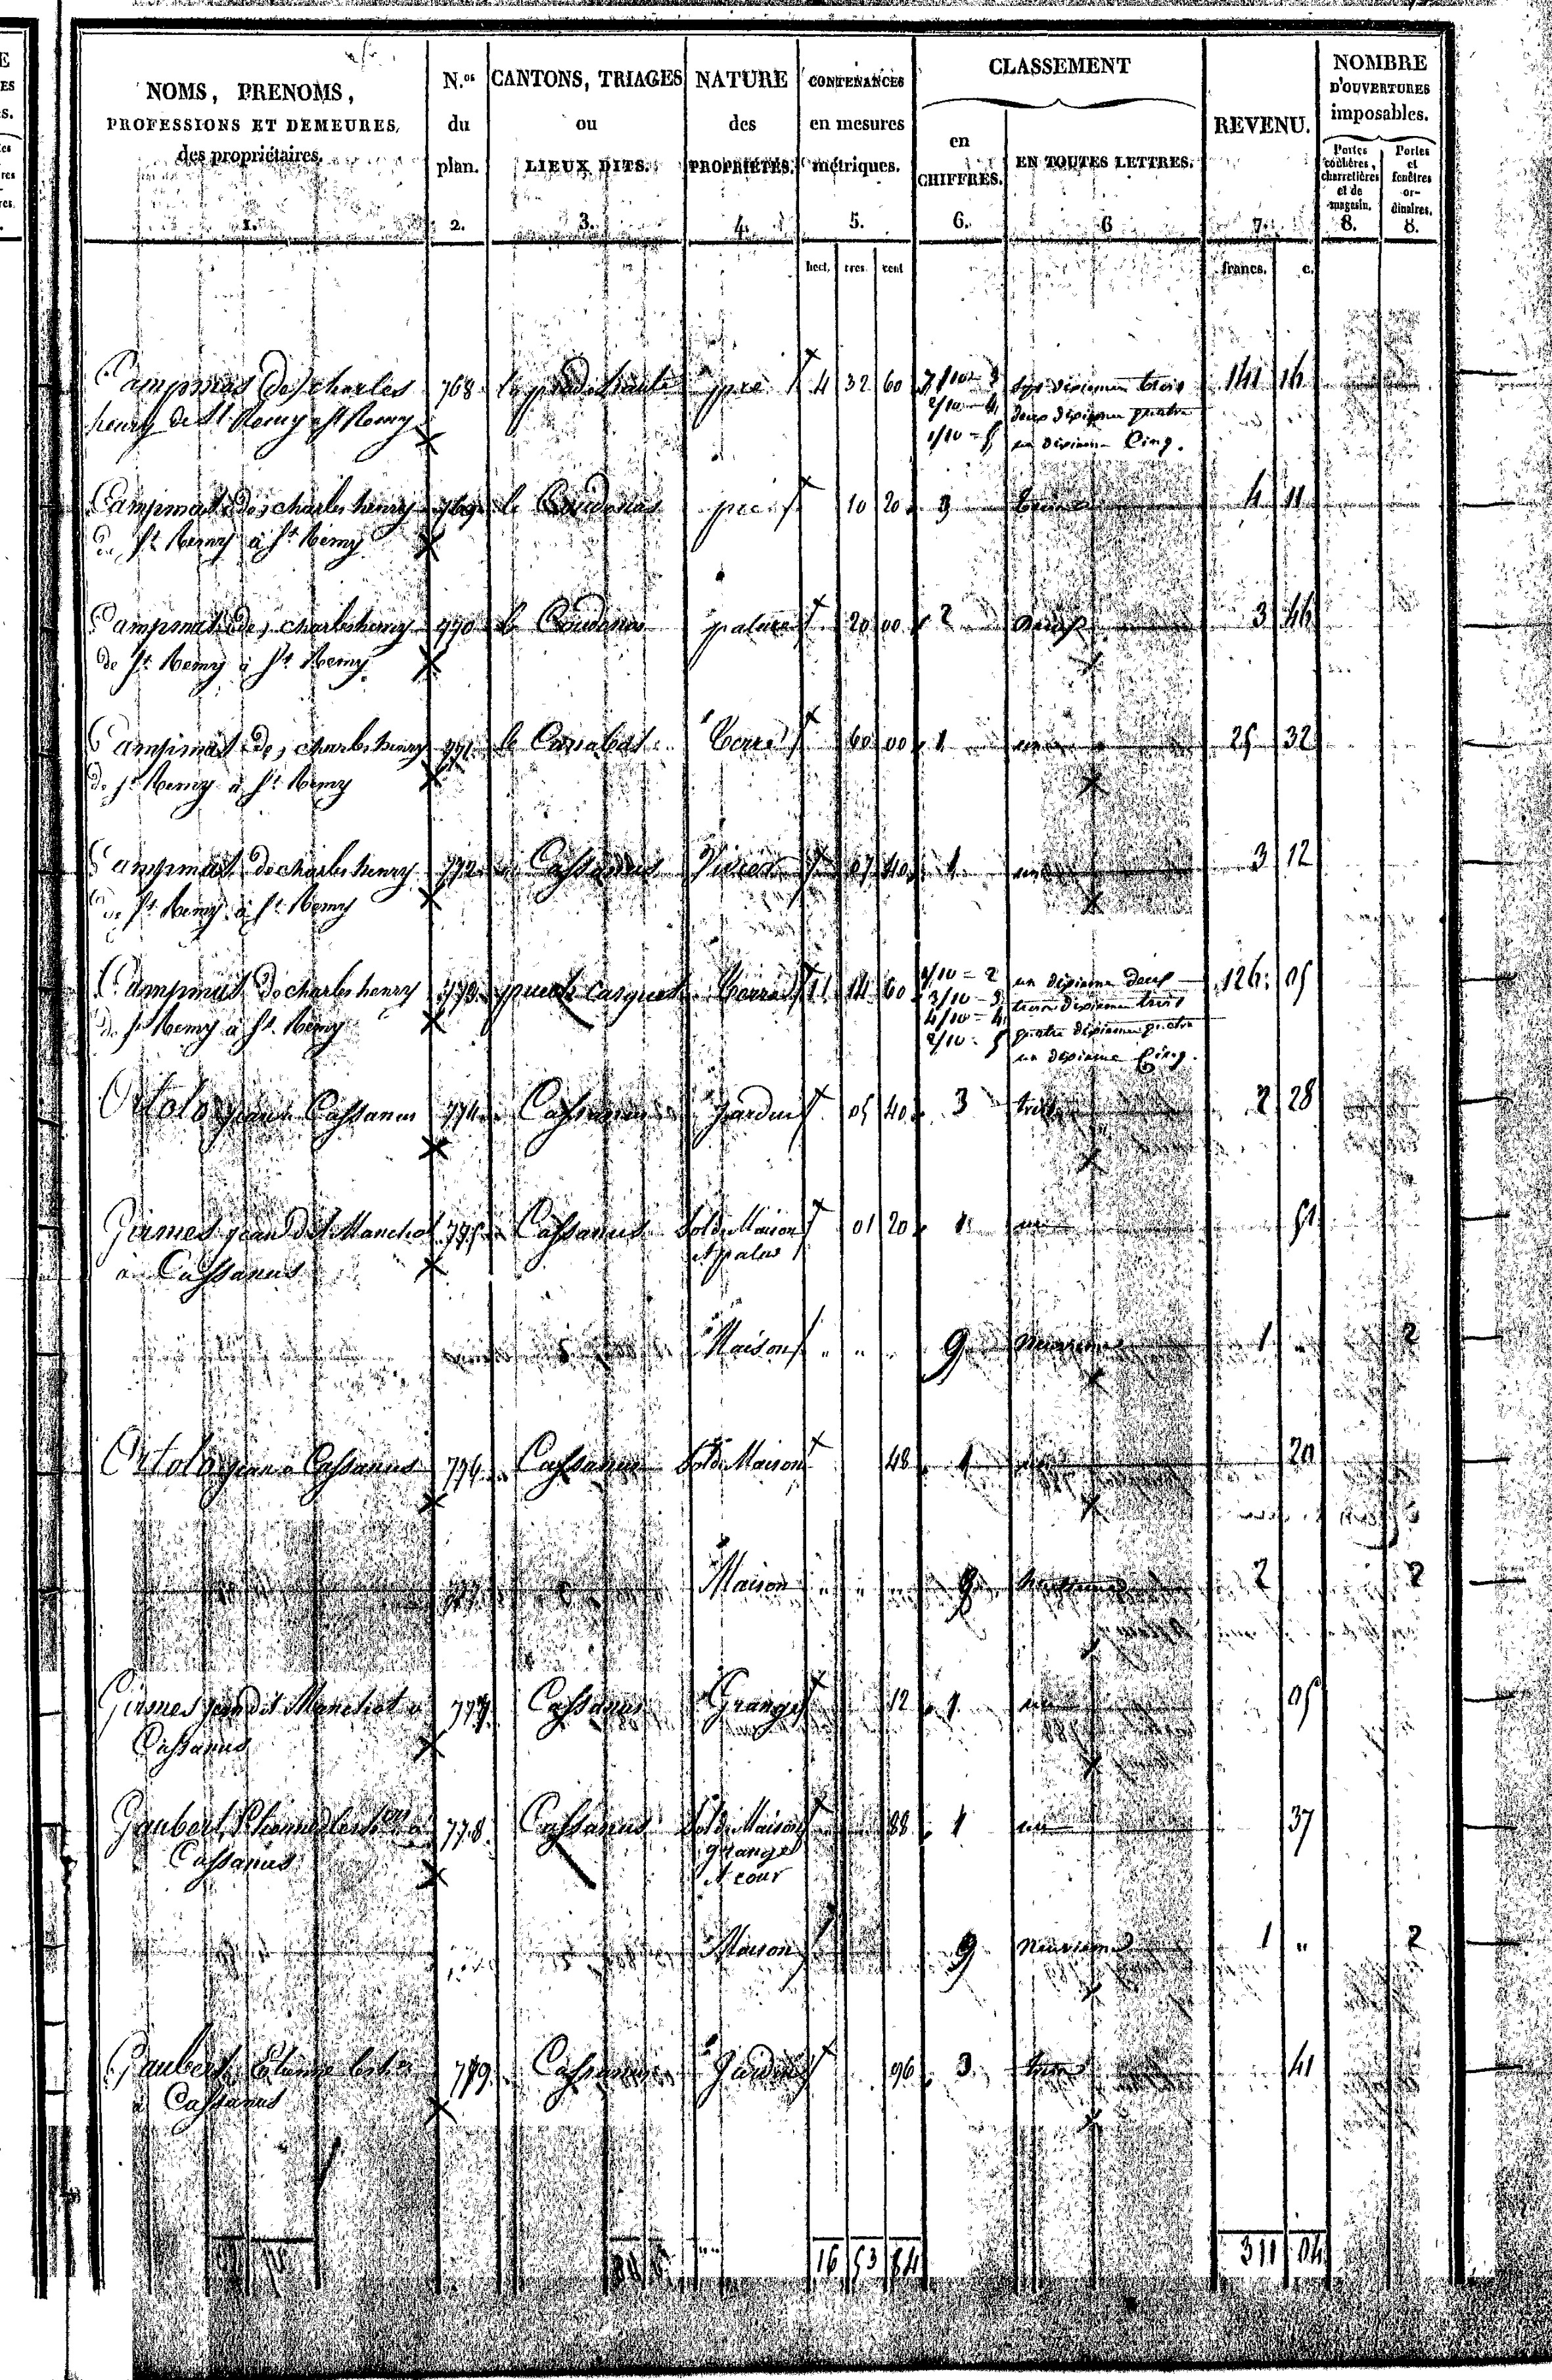 NOMS, PRENOMS,
PROFESSIONS ET DEMEURES,
des propriétaires.
1.
N.os
du
plan.
2.
CANTONS, TRIAGES
ou
LIEUX DITS.
3.
NATURE
des
PROPRIETES.
4.
CONTENANCES
en mesures
métriques.
5.
CLASSEMENT
en
CHIFFRES.
6.
EN TOUTES LETTRES.
6
REVENU.
7.
NOMBRE
D'OUVERTURES
imposables.
Portes
cochères,
charretières
et de
magasin.
8.
Portes
et
fenêtres
or-
dinaires.
8.
hect. ares cent francs. c.
Campmas (de) charles 768 pré 4 32 60 7/10 = 3 sept dixiemes trois 141 14
henry de St Remy a St Remy 2/10 = 4 deux dixiemes quatre
1/10 = 5 un dixieme Cinq.
Campmas (de) charles henry 769 le Coudenas pré 10 20 3 trois 4 11
de St Remy à St Remy
Campmas (de) charles henry 770 le Coudenas pature 20 00 2 deux 3 46
de St Remy à St Remy
Campmas de charles henry 771 le Canabal Terre 60 00 1 un 25 32
de St Remy à St Remy
Campmas de charles henry 772 Cassanus Vivier 07 40 1 un 3 12
de St Remy à St Remy
Campmas de charles henry 773 casquet Terre 11 14 60 1/10 = 2 un dixieme deux 126 05
de St Remy à St Remy 3/10 = 3 trois dixiemes trois
4/10 = 4 quatre dixiemes quatre
2/10 = 5 un dixieme Cinq.
Ortolo jean à Cassanus 774 Cassanus jardin 05 40 3 trois 2 28
Girmes jean dit Manchot 775 Cassanus Sol de Maison 01 20 1 un 51
à Cassanus et patus
Maison 9 Neuvieme 1 2
Ortolo jean à Cassanus 776 Cassanus Sol de Maison 48 1 un 20
Maison 2 2
Girmes jean dit Manchot à 777 Cassanus Grange 12 1 un 05
Cassanus
Gaubert 778 Cassanus Sol de Maison 88 1 un 37
Cassanus grange
et cour
Maison 9 Neuvieme 1 2
Gaubert Etienne 779 Cassanus Jardin 96 3 trois 41
à Cassanus
16 53 84 311 04